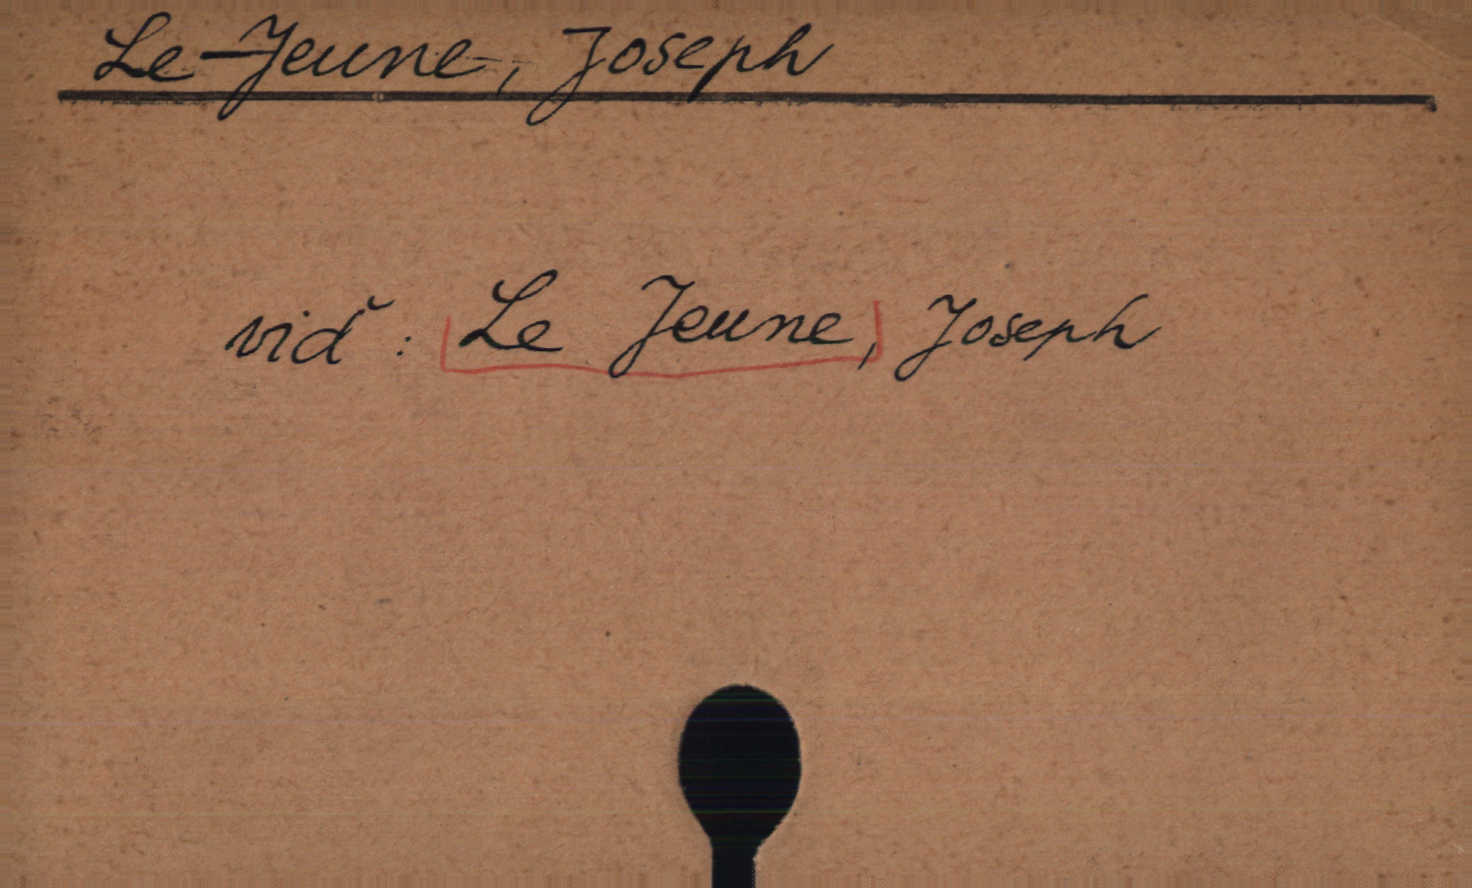 Le-Jeune, Joseph
viď: Le Jeune, Joseph